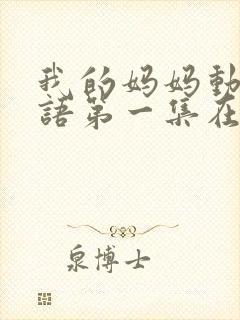 我的妈妈動
語第一集在
泉博士